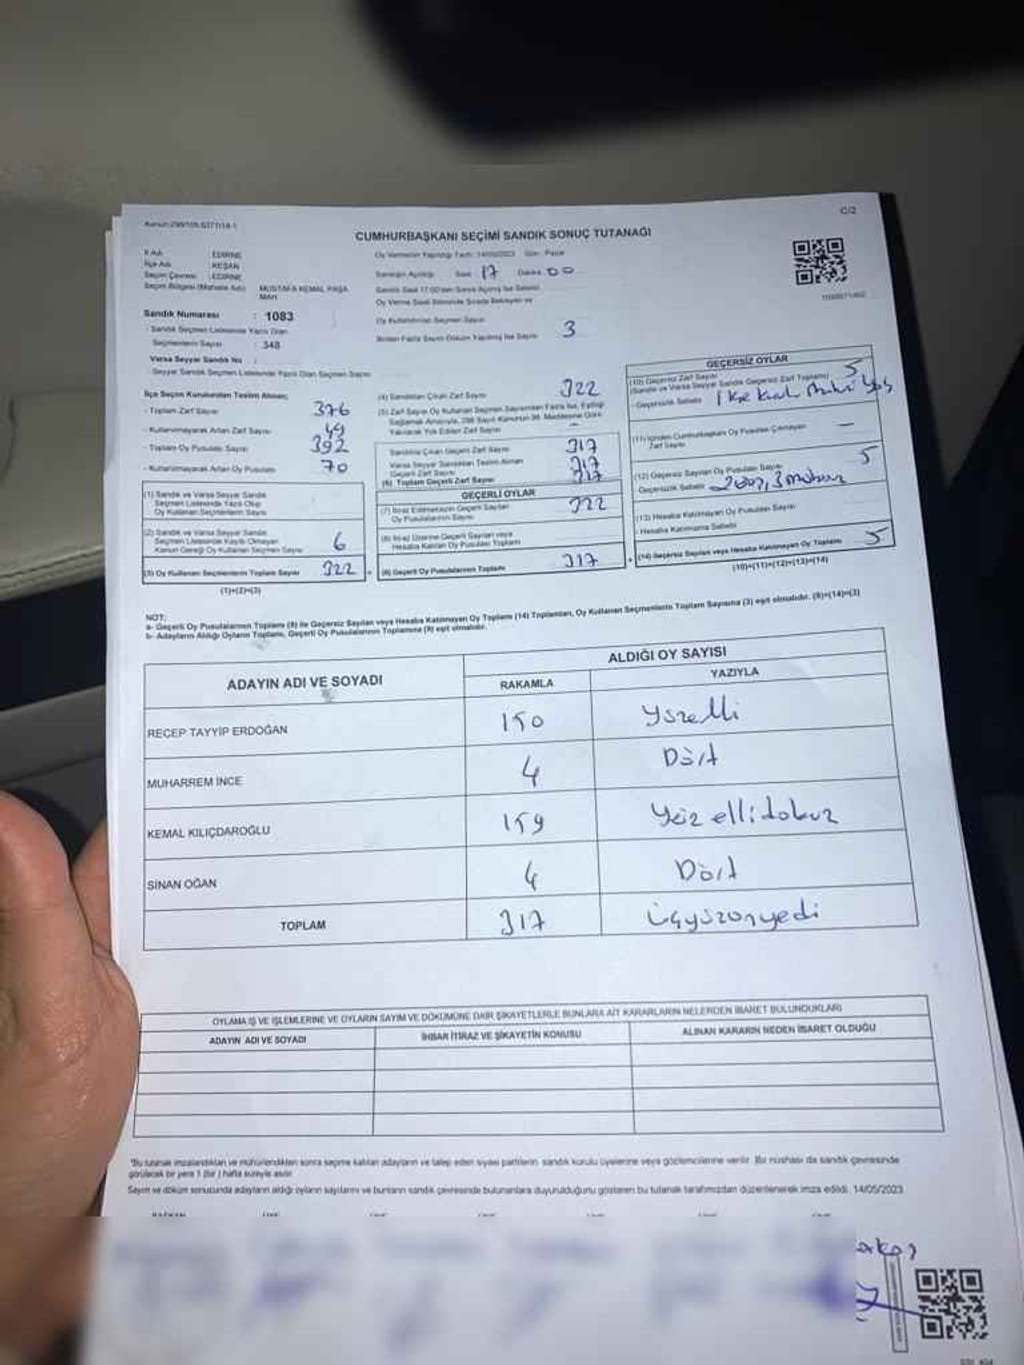 C/2
CUMHURBAŞKANI SEÇİMİ SANDIK SONUÇ TUTANAĞI
İl Adı : EDİRNE
İlçe Adı : KEŞAN
Seçim Çevresi : EDİRNE
Seçim Bölgesi (Mahalle Adı) : MUSTAFA KEMAL PAŞA MAH
Oy Vermenin Yapıldığı Tarih: 14/05/2023 Gün: Pazar
Sandığın Açıldığı Saat 17 Dakika 00
Sandık Numarası : 1083
- Sandık Seçmen Listesinde Yazılı Olan
Seçmenlerin Sayısı : 348
Oy Kullandırılan Seçmen Sayısı
3
Varsa Seyyar Sandık No :
- Seyyar Sandık Seçmen Listesinde Yazılı Olan Seçmen Sayısı
İlçe Seçim Kurulundan Teslim Alınan;
- Toplam Zarf Sayısı 376
- Kullanılmayarak Artan Zarf Sayısı 49
- Toplam Oy Pusulası Sayısı 392
- Kullanılmayarak Artan Oy Pusulası 70
(1) Sandık ve Varsa Seyyar Sandık
Seçmen Listesinde Yazılı Olup
Oy Kullanan Seçmenlerin Sayısı
(2) Sandık ve Varsa Seyyar Sandık
Seçmen Listesinde Kayıtlı Olmayan
Kanun Gereği Oy Kullanan Seçmen Sayısı 6
(3) Oy Kullanan Seçmenlerin Toplam Sayısı 322
(1)+(2)=(3)
(4) Sandıktan Çıkan Zarf Sayısı 322
Sandıktan Çıkan Geçerli Zarf Sayısı 317
Varsa Seyyar Sandıktan Teslim Alınan
Geçerli Zarf Sayısı 317
(6) Toplam Geçerli Zarf Sayısı 317
GEÇERLİ OYLAR
(7) İtiraz Edilmeksizin Geçerli Sayılan
Oy Pusulalarının Sayısı 322
(8) İtiraz Üzerine Geçerli Sayılan veya
Hesaba Katılan Oy Pusulası Toplamı
(9) Geçerli Oy Pusulalarının Toplamı 317
GEÇERSİZ OYLAR
(10) Geçersiz Zarf Sayısı 5
(Sandık ve Varsa Seyyar Sandık Geçersiz Zarf Toplamı)
- Geçersizlik Sebebi
(11) İçinden Cumhurbaşkanı Oy Pusulası Çıkmayan
Zarf Sayısı —
(12) Geçersiz Sayılan Oy Pusulası Sayısı 5
- Geçersizlik Sebebi
(13) Hesaba Katılmayan Oy Pusulası Sayısı
- Hesaba Katılmama Sebebi
(14) Geçersiz Sayılan veya Hesaba Katılmayan Oy Toplamı 5
(10)+(11)+(12)+(13)=(14)
NOT:
a- Geçerli Oy Pusulalarının Toplamı (9) ile Geçersiz Sayılan veya Hesaba Katılmayan Oy Toplamı (14) Toplamları, Oy Kullanan Seçmenlerin Toplam Sayısına (3) eşit olmalıdır. (9)+(14)=(3)
b- Adayların Aldığı Oyların Toplamı, Geçerli Oy Pusulalarının Toplamına (9) eşit olmalıdır.
ADAYIN ADI VE SOYADI
ALDIĞI OY SAYISI
RAKAMLA YAZIYLA
RECEP TAYYİP ERDOĞAN 150 Yüzelli
MUHARREM İNCE 4 Dört
KEMAL KILIÇDAROĞLU 159 Yüz ellidokuz
SİNAN OĞAN 4 Dört
TOPLAM 317 Üçyüzonyedi
OYLAMA İŞ VE İŞLEMLERİNE VE OYLARIN SAYIM VE DÖKÜMÜNE DAİR ŞİKAYETLERLE BUNLARA AİT KARARLARIN NELERDEN İBARET BULUNDUKLARI
ADAYIN ADI VE SOYADI İHBAR İTİRAZ VE ŞİKAYETİN KONUSU ALINAN KARARIN NEDEN İBARET OLDUĞU
"Bu tutanak imzalandıktan ve mühürlendikten sonra seçime katılan adayların ve talep eden siyasi partilerin sandık kurulu üyelerine veya gözlemcilerine verilir. Bir nüshası da sandık çevresinde
görülecek bir yere 1 (bir) hafta süreyle asılır.
Sayım ve döküm sonucunda adayların aldığı oyların sayılarını ve bunların sandık çevresinde bulunanlara duyurulduğunu gösteren bu tutanak tarafımızdan düzenlenerek imza edildi. 14/05/2023